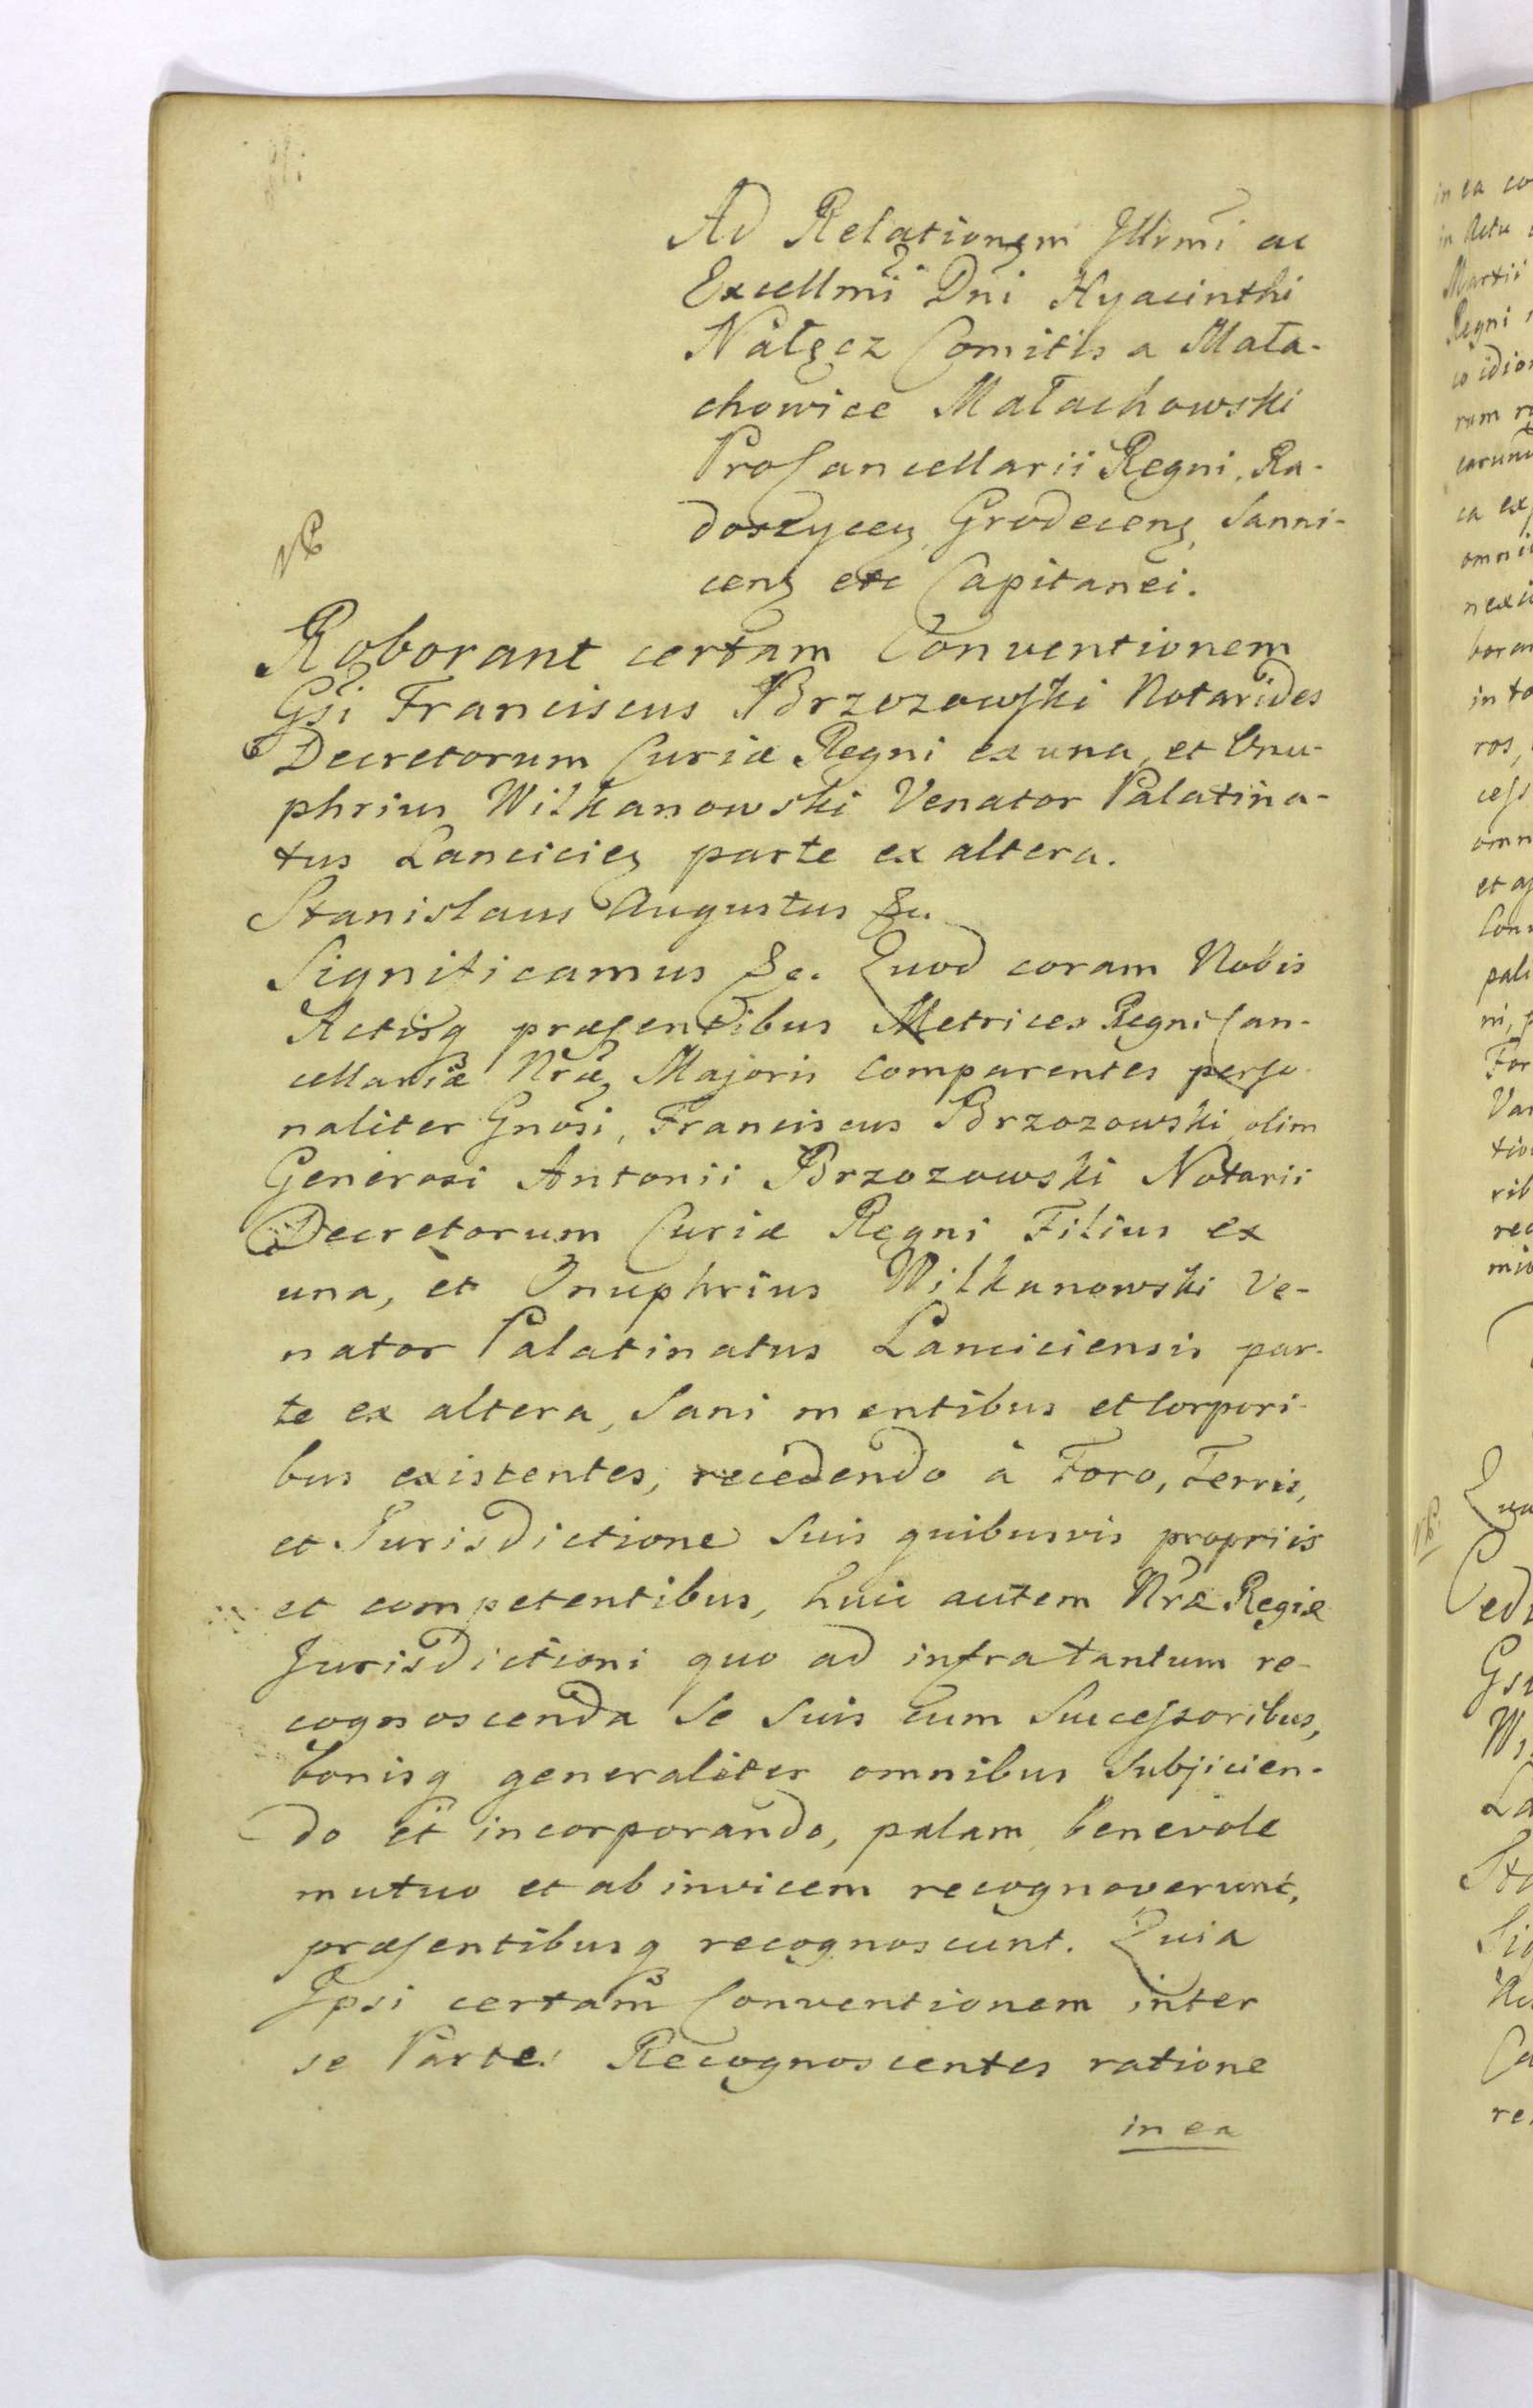 Ad Relationem Jllrmi ac
Excellmi Dni Hyacinthi
Nałęcz Comitis a Mała-
chowice Małachowski
ProCancellarii Regni, Ra-
doszycen, Grodecens, Sanni-
cens etc Capitanei.
Roborant certam Conventionem
Gsi Franciscus Brzozowski
Decretorum Curiæ Regni ex una, et Onu-
phrius Wilkanowski Venator Palatina-
tus Lancicies parte ex altera.
Stanislaus Augustus &c.
Significamus &c. Quod coram Nobis
Actisq præsentibus Metrices Regni Can-
cellariæ Nræ Majoris Comparentes perso-
naliter Gnosi, Franciscus Brzozowski, olim
Generosi Antonii Brzozowski Notarii
Decretorum Curiæ Regni Filius ex
una, et Onuphrius Wilkanowski Ve-
nator Palatinatus Lanciciensis par-
te ex altera, Sani mentibus et Corpori-
bus existentes, recedendo à Foro, Terris,
et Jurisdictione Suis quibusvis propriis
et competentibus, huic autem Nræ Regiæ
Jurisdictioni quo ad infra tantum re-
cognoscenda Se Suis cum Successoribus,
bonisq generaliter omnibus Subjicien-
do et incorporando, palam benevole
mutuo et ab invicem recognoverunt,
præsentibusq recognoscunt. Quia
Ipsi certam Conventionem inter
se Partes Recognoscentes ratione
in ea